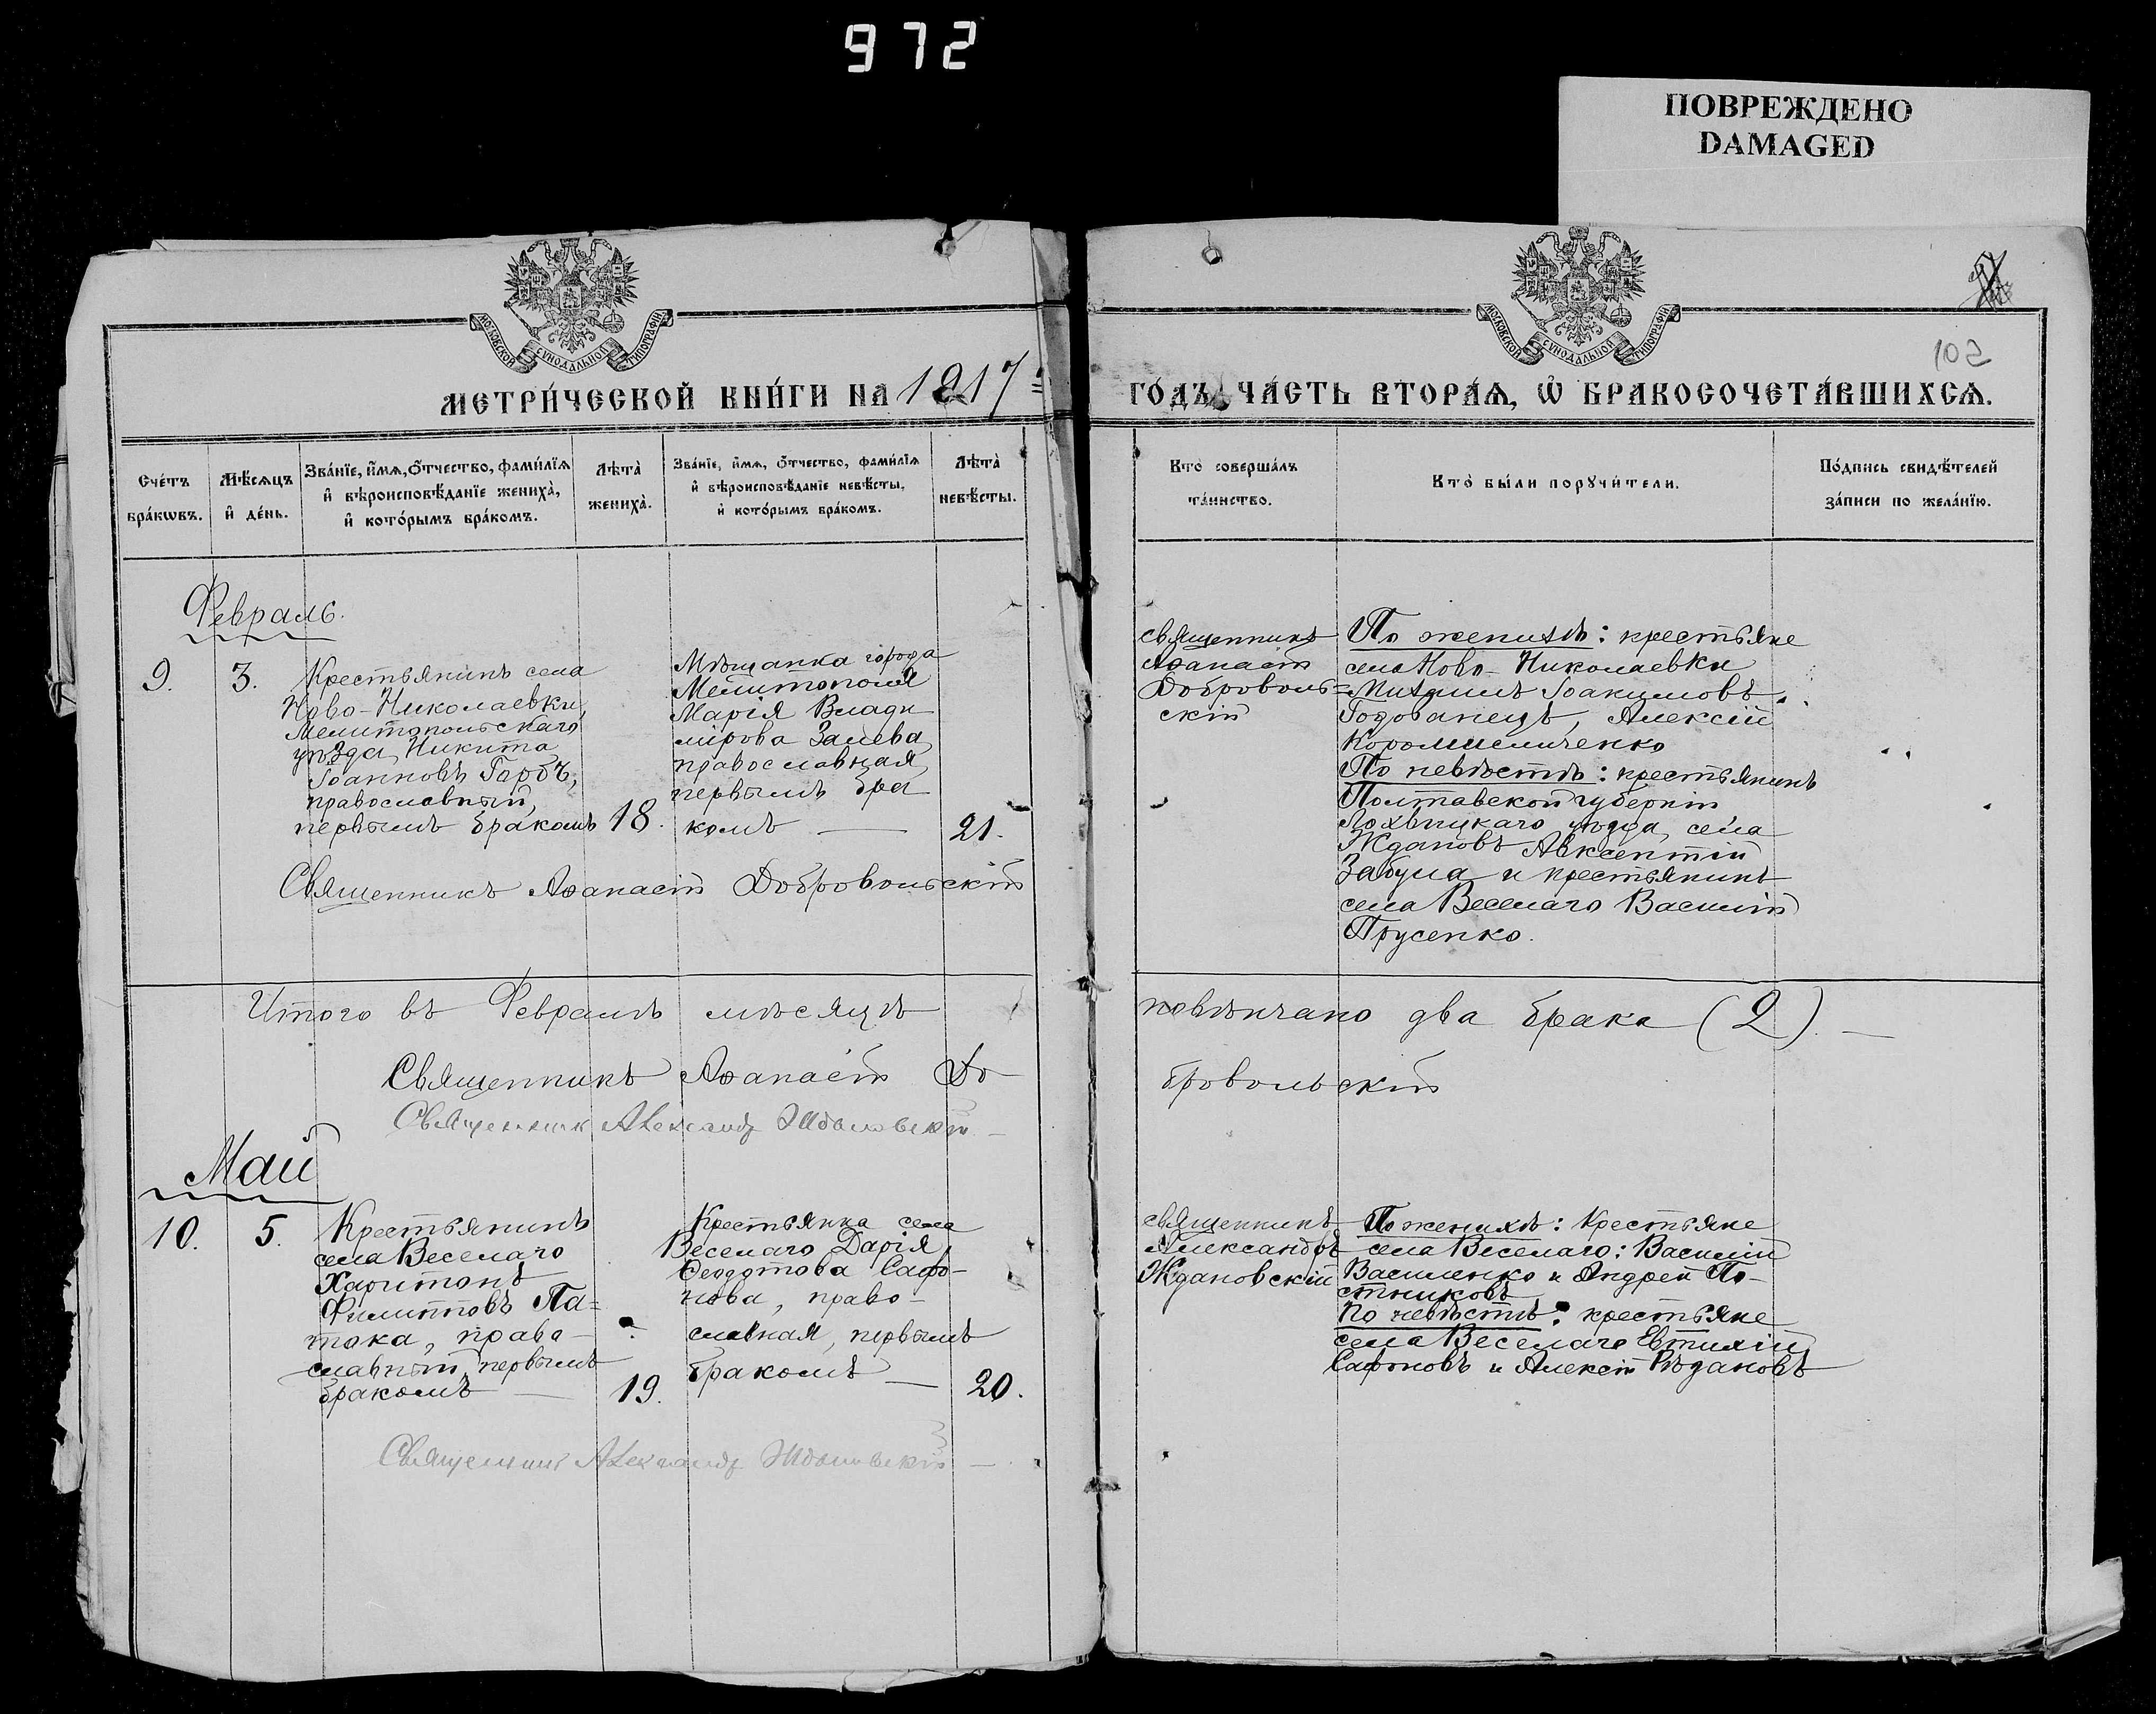 972
ПОВРЕЖДЕНО
DAMAGED
МОСКОВСКОЙ СѴНОДАЛЬНОЙ ТИПОГРАФІИ
МОСКОВСКОЙ СѴНОДАЛЬНОЙ ТИПОГРАФІИ
102
МЕТРИ́ЧЕСКОЙ КНИ́ГИ НА 1917
ГО́ДЪ ЧА́СТЬ ВТОРА́Ѧ, Ѡ҆ БРАКОСОЧЕТА́ВШИХСѦ.
Сче́тъ бра́кѡвъ.
Мѣ́сѧцъ и҆ де́нь.
Зва́нїе, и҆́мѧ, ѻ҆́тчество, фами́лїѧ
и҆ вѣроисповѣ́данїе жениха̀,
и҆ кото́рымъ бра́комъ.
Лѣта̀ жениха̀.
Зва́нїе, и҆́мѧ, ѻ҆́тчество, фами́лїѧ
и҆ вѣроисповѣ́данїе невѣ́сты,
и҆ кото́рымъ бра́комъ.
Лѣта̀ невѣ́сты.
Кто̀ соверша́лъ
та́инство.
Кто̀ бы́ли порꙋчи́тели.
По́дпись свидѣ́телей
за́писи по жела́нїю.
Февраль.
9.
3.
Крестьянинъ села
Ново-Николаевки,
Мелитопольскаго
уѣзда, Никита
Іоанновъ Гарбъ,
православный,
первымъ бракомъ
18.
Мѣщанка города
Мелитополя
Марія Влади
мірова Заева,
православная,
первымъ бра
комъ —
21.
Священникъ Аѳанасій Добровольскій
священникъ
Аѳанасій
Доброволь=
скій
По женихѣ: крестьяне
села Ново-Николаевки
Михаилъ Іоакимовъ
Годованецъ, Алексій
Коромысличенко
По невѣстѣ: крестьянинъ
Полтавской губерніи
Лохвицкаго уѣзда, села
Ждановъ Авксентій
Забула и крестьянинъ
села Веселаго Василій
Прусенко.
Итого въ Февралѣ мѣсяцѣ
повѣнчано два брака (2). —
Священникъ Аѳанасій До-
бровольскій
Священник Александр Ждановский
Май
10.
5.
Крестьянинъ
села Веселаго
Харитонъ
Филипповъ Па=
тока, право-
славный, первымъ
бракомъ —
19.
Крестьянка села
Веселаго Дарія
Ѳеодотова Сафо-
нова, право-
славная, первымъ
бракомъ —
20.
Священник Александр Ждановский —
священникъ
Александръ
Ждановскій
По женихѣ: крестьяне
села Веселаго: Василій
Василенко и Андрей По-
стниковъ
По невѣстѣ: крестьяне
села Веселаго Евтихій
Сафоновъ и Алексій